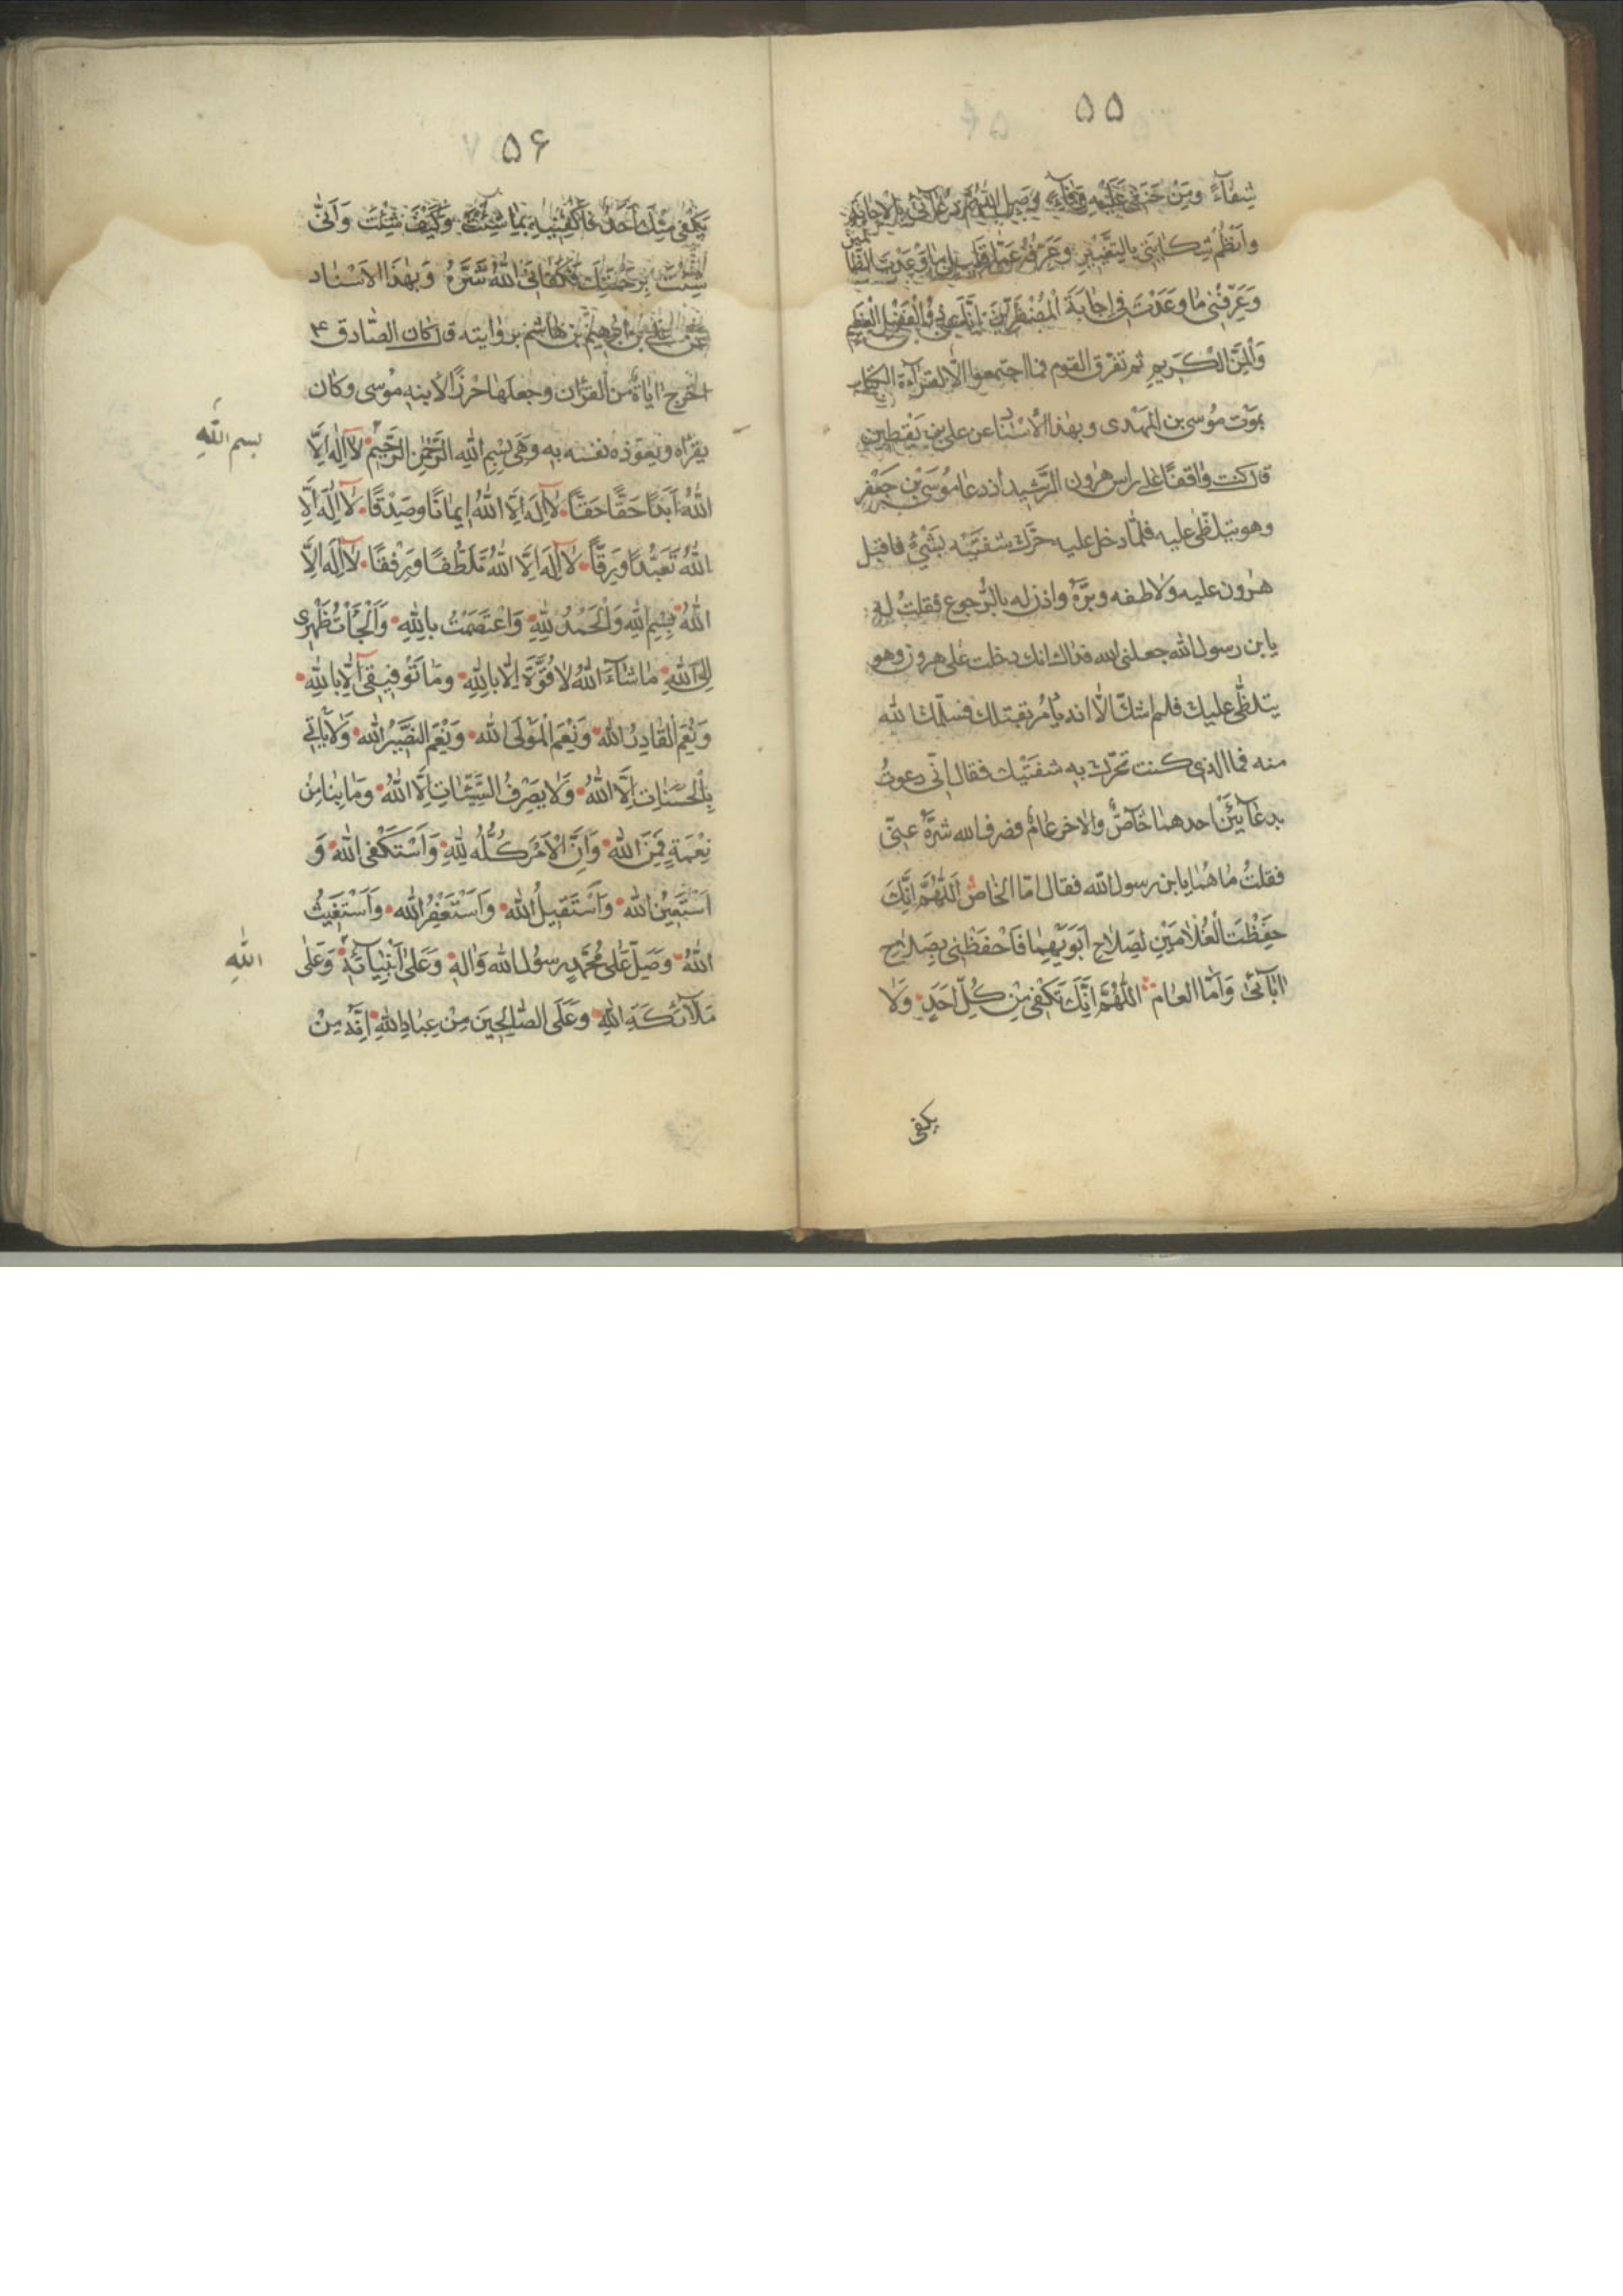 ۵۵
شِفٰآءً وَمِنْ حَنَقى عَلَيْهِ وِقٰآءً وَصِلِ اللّٰهُمَّ دُعٰآئى بِالْاِجٰابَةِ
وانْظُمْ شِكٰايَتى بِالتَّغْيٖيرِ وَعَرِّفْهُ عَمّٰا قَليلٍ مٰا وَعَدْتَ الظّٰا
لمين
وَعَرِّفْنى مٰا وَعَدْتَ فى اِجٰابَةَ الْمُضْطَرّينَ اِنَّكَ ذُو الْفَضْلِ الْعَظيمِ
وَالْمَنِّ الْكَريمِ ثم تفرق القوم فما اجتمعوا الّا لقرآءة الكتاب
بموْت مُوسى بن المَهْدى وبهٰذا الْأسْنٰاد عن على بن يَقْطين
قال كنت واقفًا على راس هٰرون الرَّشيد أذ دعا مُوسَى بْن جَعْفر
وهو يتلظّى عليه فلمّا دخل عليه حَرَّك شفتَيْه بشَيْئ فاقبل
هٰرون عليه وَلاطفه وبَرَّهُ واذن له بالرُّجوع فقلتُ له
يا بن رسول الله جعلنى الله فداك انك دخلت على هرون وهو
يتلظّى عليك فلم اشكّ الّا انه يٰأمُر بقتلك فسلّمك الله
منه فما الذى كنت تحرّك به شفتَيْك فقال انّى دعوتُ
بدعٰآئين احدهما خٰآصٌّ والاخر عٰامٌ فصرف الله شرَّهُ عنّى
فقلتُ مٰا هُمٰا يا بن رسول الله فقال امّا الخٰاصُ اَللّٰهُمَّ اِنَّكَ
حَفِظْتَ الْغُلٰامَيْنِ لِصَلاحِ اَبَوَيْهِمٰا فَاحْفَظْنى بِصَلٰاحِ
اٰبٰآئى وَاَمّا العٰام اَللّٰهُمَّ اِنَّكَ تَكْفى مِنْ كُلِّ اَحَدٍ وَلٰا
يكفى
۵۶
يَكْفى مِنْكَ اَحَدٌ فَاكْفِنيهِ بِمٰا شِئْتَ وَكَيْفَ شِئْتَ وَاَنّٰى
شِئْتَ فَكَفٰانِىَ اللّٰهُ شَرَّهُ وَبهٰذَا الاسْنٰاد
عن على بن ابرٰهيم بن هٰاشم بروٰايته قال كان الصّادق ع
اخرج اٰيٰاة من القرٰان وجعلها حرزًا لابنه مُوسى وكان
يقرٰاه ويعوّذه نفسه به وهى بِسْمِ اللّٰهِ الرَّحْمٰنِ الرَّحيمْ لٰا اِلٰهَ اِلَّا
بسم اللّٰهِ
اللّٰهُ اَبَدًا حَقًّا حَقًّا لٰا اِلٰهَ اِلَّا اللّٰهُ ايمٰانًا وصِدْقًا لٰا اِلٰهَ اِلَّا
اللّٰهُ تَعَبُّدًا وَرِقًّا لٰا اِلٰهَ اِلَّا اللّٰهُ تَلَطُّفًا وَرِفْقًا لٰا اِلٰهَ اِلَّا
اللّٰهُ بِسْمِ اللّٰهِ وَالْحَمْدُ لِلّٰهِ وَاعْتَصَمْتُ بِاللّٰهِ وَاَلْجَأْتُ ظَهْرى
اِلَى اللّٰهِ مٰا شٰآءَ اللّٰهُ لٰا قُوَّةَ اِلّٰا بِاللّٰهِ ومٰا تَوْفيقى اِلّٰا بِاللّٰهِ
وَنِعْمَ الْقٰادِرُ اللّٰه وَنِعْمَ الْمَوْلَى اللّٰه وَنِعْمَ النَّصيرُ اللّٰه وَلٰا يٰاْتى
بِالْحَسَنٰاتِ اِلَّا اللّٰهُ وَلٰا يَصْرِفُ السَّيِّئٰاتِ اِلَّا اللّٰهُ وَمٰا بِنٰا مِنْ
نِعْمَةٍ فَمِنَ اللّٰه وَاِنَّ الْاَمْرَ كُلَّه لِلّٰهِ وَاَسْتَكْفى اللّٰه وَ
اَسْتَعينُ اللّٰه وَاَسْتَقيلُ اللّٰه وَاَسْتَغْفِرُ اللّٰه وَاَسْتَغيثُ
اللّٰهُ وَصَلّ عَلٰى مُحَمَّدٍ رسُولِ اللّٰه وَاٰلِهِ وَعَلٰى اَنْبِيٰآئِهِ وَعَلٰى
اللّٰهِ
مَلٰآئكَةِ اللّٰهِ وعَلَى الصّٰالِحينَ مِنْ عِبٰادِ اللّٰهِ اِنَّهُ مِنْ